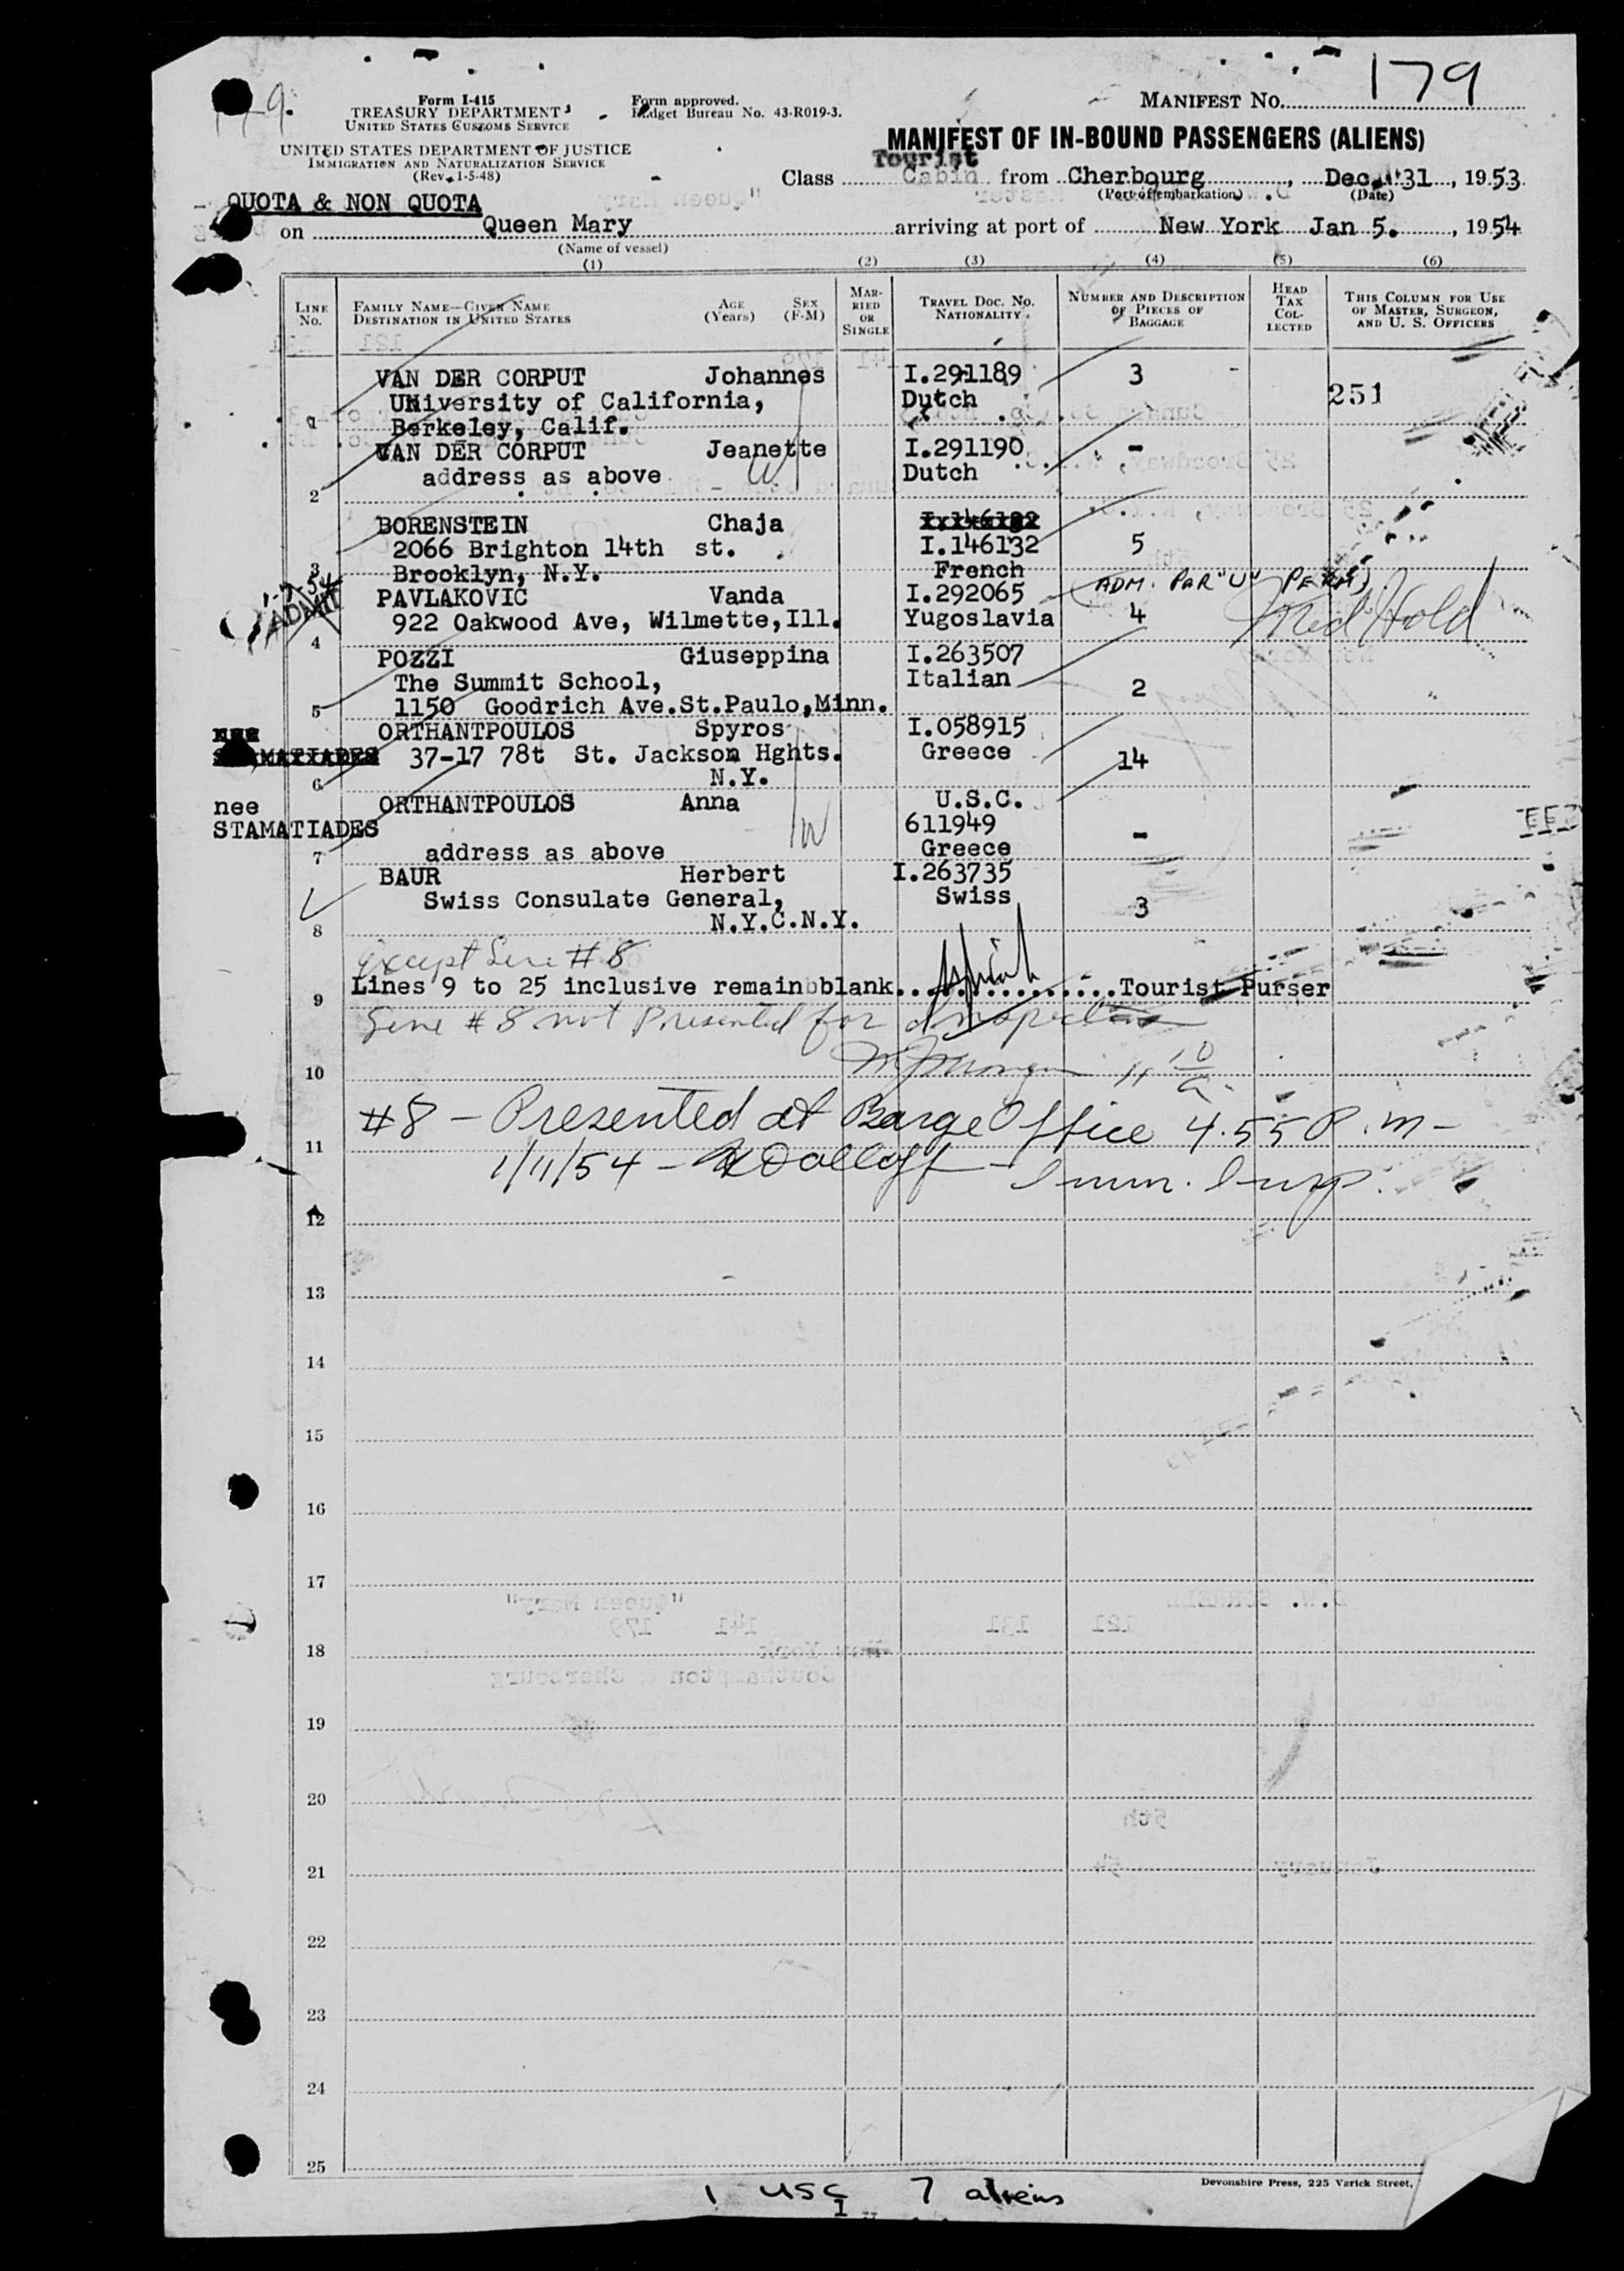 179
Form I-415
TREASURY DEPARTMENT
UNITED STATES CUSTOMS SERVICE
UNITED STATES DEPARTMENT OF JUSTICE
IMMIGRATION AND NATURALIZATION SERVICE
(Rev. 1-5-48)
Form approved.
Budget Bureau No. 43-R019-3.
MANIFEST NO. 179
MANIFEST OF IN-BOUND PASSENGERS (ALIENS)
Tourist
Class Cabin from Cherbourg, Dec. 31, 1953
(Port of embarkation) (Date)
QUOTA & NON QUOTA
on Queen Mary arriving at port of New York Jan 5., 1954
(Name of vessel)
(1) (2) (3) (4) (5) (6)
LINE NO.
FAMILY NAME—GIVEN NAME
DESTINATION IN UNITED STATES
AGE (Years)
SEX (F-M)
MARRIED OR SINGLE
TRAVEL DOC. NO. NATIONALITY
NUMBER AND DESCRIPTION OF PIECES OF BAGGAGE
HEAD TAX COLLECTED
THIS COLUMN FOR USE OF MASTER, SURGEON, AND U. S. OFFICERS
VAN DER CORPUT Johannes I.291189 3
University of California, Dutch 251
1 Berkeley, Calif.
VAN DER CORPUT Jeanette I.291190 -
address as above W Dutch
2
BORENSTEIN Chaja
2066 Brighton 14th st. I.146132 5
3 Brooklyn, N.Y. French
1-7-54 ADMIT
PAVLAKOVIC Vanda I.292065 (ADM. PAR "U" PERM)
922 Oakwood Ave, Wilmette,Ill. Yugoslavia 4 Med Hold
4
POZZI Giuseppina I.263507
The Summit School, Italian 2
5 1150 Goodrich Ave.St.Paulo,Minn.
ORTHANTPOULOS Spyros I.058915
37-17 78t St. Jackson Hghts. Greece 14
6 N.Y.
nee ORTHANTPOULOS Anna U.S.C.
STAMATIADES 611949 -
7 address as above W Greece
BAUR Herbert I.263735
Swiss Consulate General, Swiss 3
8 N.Y.C.N.Y.
Except Line #8
9 Lines 9 to 25 inclusive remain blank..............Tourist Purser
Line #8 not Presented for Inspection
10
#8 - Presented at Barge Office 4.55 P.m-
11
1/11/54 - Imm. Insp.
12
13
14
15
16
17
18
19
20
21
22
23
24
25
Devonshire Press, 225 Varick Street,
1 USC 7 aliens